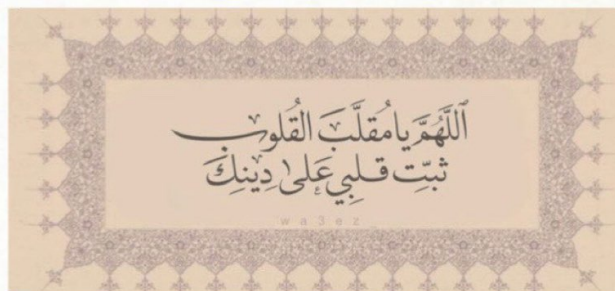 اَللَّهُمَّ يا مُقلَّبَ القُلوب
ثبّتِ قلبِي عَلى دِينِكَ
_wa3ez_